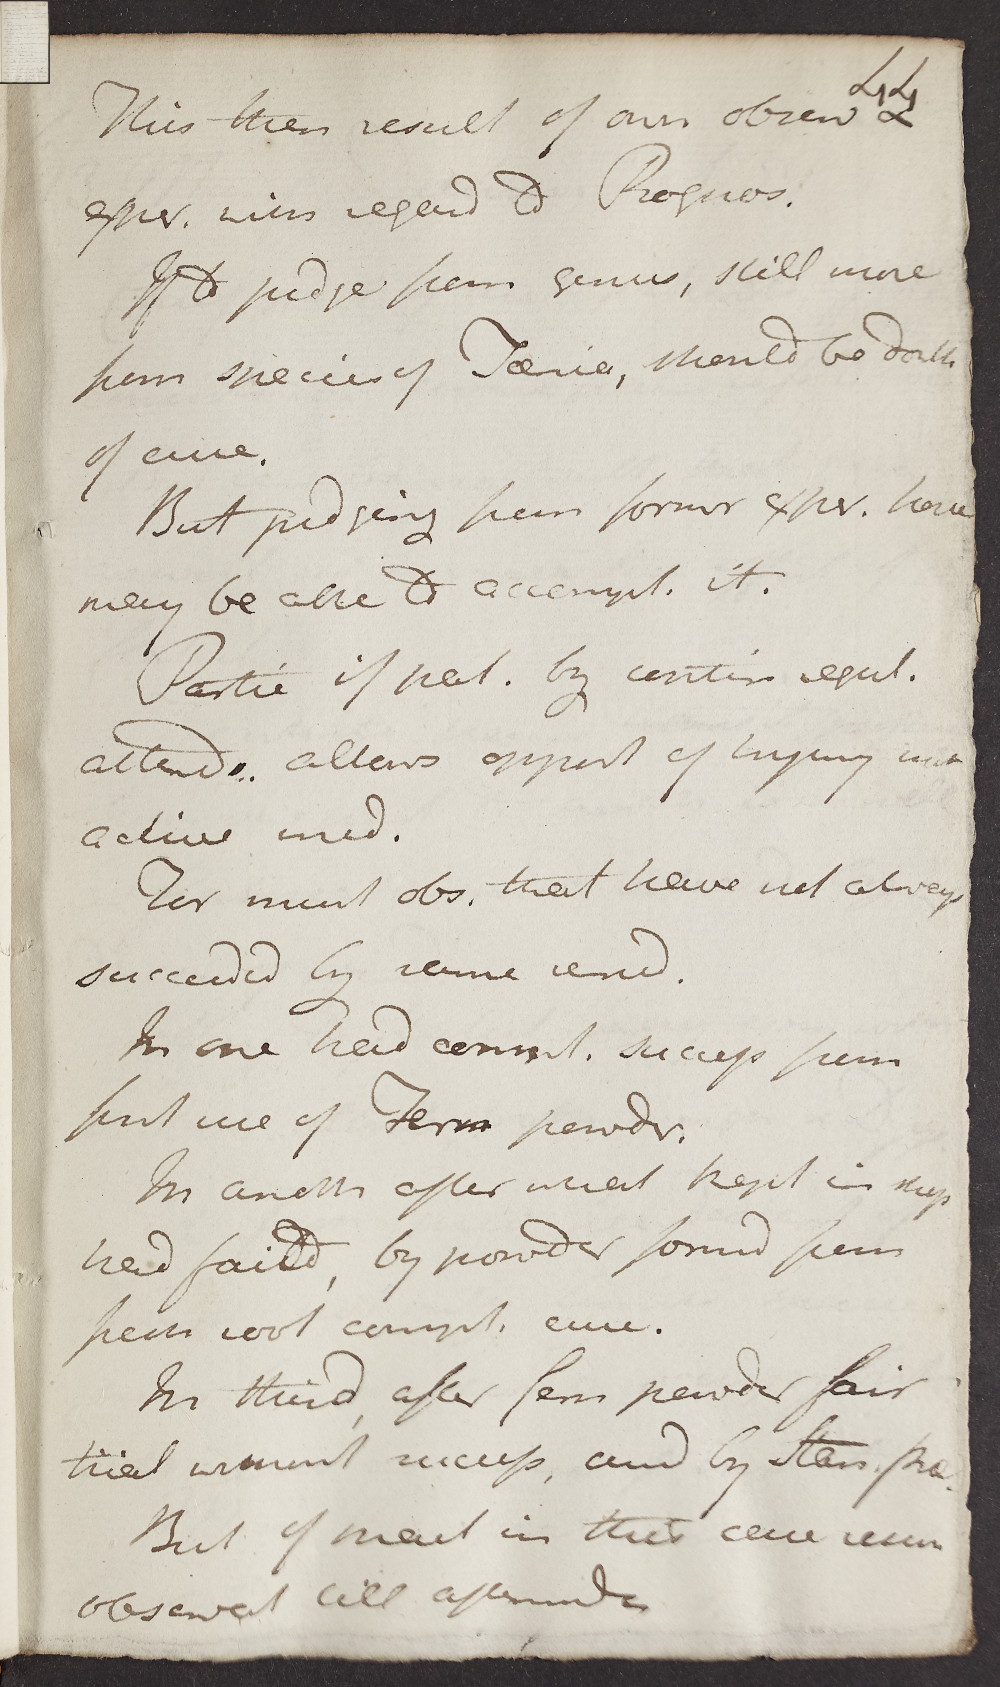 44
This then result of own observ &
exper. with regard to Prognos.
If to judge from genus, still more
from species of Taenia, should be doubtf
of cure.
But judging from former exper. hope
may be able to accompl. it.
Partic if pat. by contin regul.
attend.. allows opport of trying such
active med.
For must obs. that have not always
succeeded by same remd.
In one had compl. success from
first use of Fern powdr.
In anoth after what kept in shop
had faild, by powder formd from
fern root compl. cure.
In third, after fern powder fair
trial without success, cure by Stan. pra.
But of meat in this case
observat till afterwards